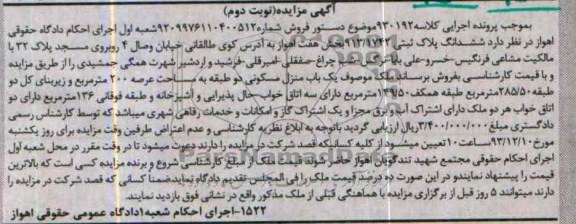 آگهی مزایده(نوبت دوم)
بموجب پرونده اجرایی کلاسه ۹۳۰۱۹۲موضوع دستور فروش شماره۹۳۰۹۹۷۶۱۱۰۴۰۰۵۱۲شعبه اول اجرای احکام دادگاه حقوقی
اهواز در نظر دارد ششدانگ پلاک ثبتی ۹۱۳/۱۷۴۲بخش هفت اهواز به آدرس کوی طالقانی خیابان وصال ۴ روبروی مسجد پلاک ۳۲ با
مالکیت مشاعی فرنگیس-خسرو-علی بابا- چراغ-صفقلی-امیرقلی-فرشید و اردشیر شهرت همگی جمشیدی را از طریق مزایده
و با قیمت کارشناسی بفروش برساند.ملک موصوف یک باب منزل مسکونی دو طبقه به مساحت عرصه ۲۰۰ مترمربع و زیربنای کل دو
طبقه ۲۸۵/۵۰مترمربع طبقه همکف ۱۴۹/۵۰مترمربع دارای سه اتاق خواب-حال پذیرایی و آشپزخانه و طبقه فوقانی ۱۳۶مترمربع دارای دو
اتاق خواب هر دو ملک دارای اشتراک آب و برق مجزا و یک اشتراک گاز و امکانات و خدمات رفاهی شهری میباشد که توسط کارشناس رسمی
دادگستری مبلغ ۳/۴۰۰/۰۰۰/۰۰۰ریال ارزیابی گردید باتوجه به ابلاغ نظریه کارشناسی و عدم اعتراض طرفین وقت مزایده برای روز یکشنبه
مورخ ۹۳/۱۲/۱۰ساعت ۱۰تعیین میشود از کلیه کسانیکه قصد شرکت در مزایده را دارند دعوت میشود تا در وقت مقرر در محل شعبه اول
اجرای احکام حقوقی مجتمع شهید تندگویان اهواز حاضر شوند قیمت ملک از مبلغ کارشناسی شروع و برنده مزایده کسی است که بالاترین
قیمت را پیشنهاد نمایندو در این صورت ده درصد قیمت ملک را فی المجلس تقدیم دادگاه نماید.ضمنا کسانی که قصد شرکت در مزایده را
دارند میتوانند ۵ روز قبل از برگزاری مزایده با هماهنگی قبلی از ملک مذکور واقع در نشانی فوق بازدید نمایند.
۱۵۲۲-اجرای احکام شعبه۱دادگاه عمومی حقوقی اهواز